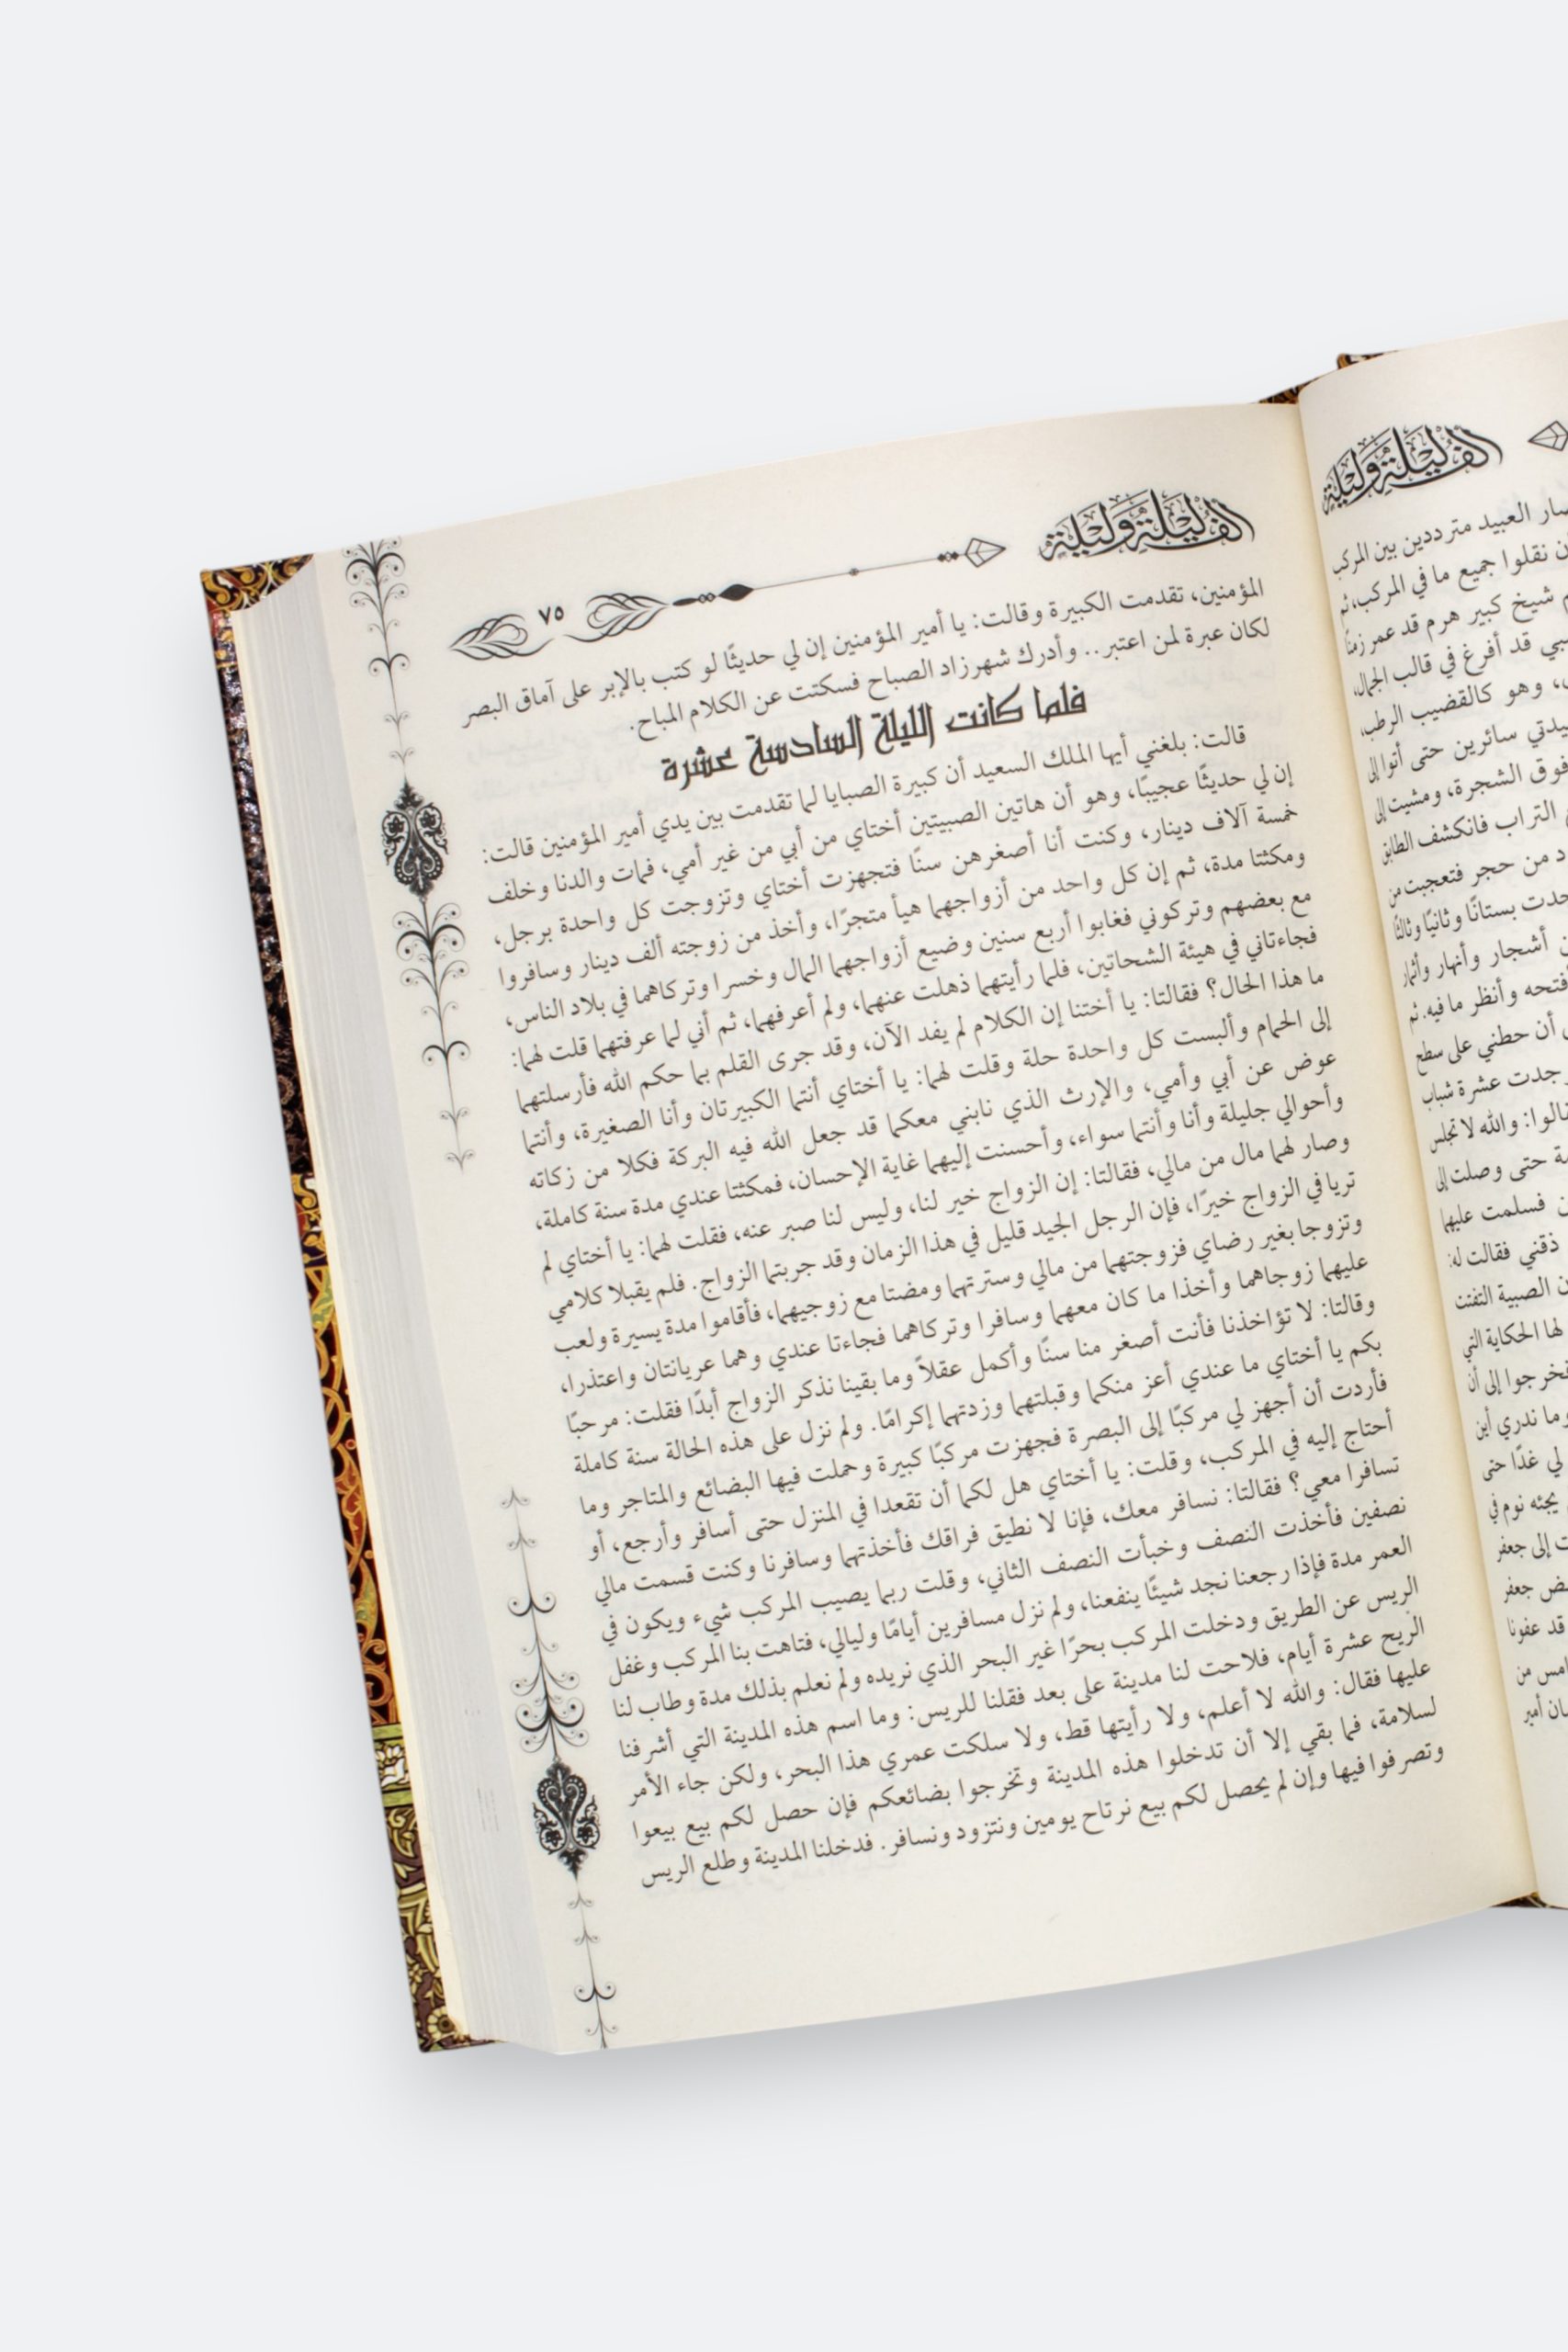 ألف ليلة وليلة
العبيد مترددين بين المركب
نقلوا جميع ما في المركب، ثم
شيخ كبير هرم قد عمر زمنًا
قد أفرغ في قالب الجمال،
وهو كالقضيب الرطب،
سائرين حتى أتوا إلى
فوق الشجرة، ومشيت إلى
التراب فانكشف الطابق
من حجر فتعجبت من
بستانًا وثانيًا وثالثًا
أشجار وأنهار وأثمار
وأنظر ما فيه. ثم
أن حطني على سطح
عشرة شباب
والله لا تجلس
حتى وصلت إلى
فسلمت عليها
ذقني فقالت له:
الصبية التفتت
لها الحكاية التي
فخرجوا إلى أن
وما ندري أين
لي غدًا حتى
يجئه نوم في
إلى جعفر
جعفر
قد عفونا
من
أمير
ألف ليلة وليلة ٧٥
المؤمنين، تقدمت الكبيرة وقالت: يا أمير المؤمنين إن لي حديثًا لو كتب بالإبر على آماق البصر
لكان عبرة لمن اعتبر.. وأدرك شهرزاد الصباح فسكتت عن الكلام المباح.
فلما كانت الليلة السادسة عشرة
قالت: بلغني أيها الملك السعيد أن كبيرة الصبايا لما تقدمت بين يدي أمير المؤمنين قالت:
إن لي حديثًا عجيبًا، وهو أن هاتين الصبيتين أختاي من أبي من غير أمي، فمات والدنا وخلف
خمسة آلاف دينار، وكنت أنا أصغرهن سنًا فتجهزت أختاي وتزوجت كل واحدة برجل،
ومكثتا مدة، ثم إن كل واحد من أزواجهما هيأ متجرًا، وأخذ من زوجته ألف دينار وسافروا
مع بعضهم وتركوني فغابوا أربع سنين وضيع أزواجهما المال وخسرا وتركاهما في بلاد الناس،
فجاءتاني في هيئة الشحاتين، فلما رأيتهما ذهلت عنهما، ولم أعرفهما، ثم أني لما عرفتهما قلت لهما:
ما هذا الحال؟ فقالتا: يا أختنا إن الكلام لم يفد الآن، وقد جرى القلم بما حكم الله فأرسلتهما
إلى الحمام وألبست كل واحدة حلة وقلت لهما: يا أختاي أنتما الكبيرتان وأنا الصغيرة، وأنتما
عوض عن أبي وأمي، والإرث الذي نابني معكما قد جعل الله فيه البركة فكلا من زكاته
وأحوالي جليلة وأنا وأنتما سواء، وأحسنت إليهما غاية الإحسان، فمكثتا عندي مدة سنة كاملة،
وصار لهما مال من مالي، فقالتا: إن الزواج خير لنا، وليس لنا صبر عنه، فقلت لهما: يا أختاي لم
تريا في الزواج خيرًا، فإن الرجل الجيد قليل في هذا الزمان وقد جربتما الزواج. فلم يقبلا كلامي
وتزوجا بغير رضاي فزوجتهما من مالي وسترتهما ومضتا مع زوجيهما، فأقاموا مدة يسيرة ولعب
عليهما زوجاهما وأخذا ما كان معهما وسافرا وتركاهما فجاءتا عندي وهما عريانتان واعتذرا،
وقالتا: لا تؤاخذنا فأنت أصغر منا سنًا وأكمل عقلاً وما بقينا نذكر الزواج أبدًا فقلت: مرحبًا
بكم يا أختاي ما عندي أعز منكما وقبلتهما وزدتهما إكرامًا. ولم نزل على هذه الحالة سنة كاملة
فأردت أن أجهز لي مركبًا إلى البصرة فجهزت مركبًا كبيرة وحملت فيها البضائع والمتاجر وما
أحتاج إليه في المركب، وقلت: يا أختاي هل لكما أن تقعدا في المنزل حتى أسافر وأرجع، أو
تسافرا معي؟ فقالتا: نسافر معك، فإنا لا نطيق فراقك فأخذتهما وسافرنا وكنت قسمت مالي
نصفين فأخذت النصف وخبأت النصف الثاني، وقلت ربما يصيب المركب شيء ويكون في
العمر مدة فإذا رجعنا نجد شيئًا ينفعنا، ولم نزل مسافرين أيامًا وليالي، فتاهت بنا المركب وغفل
الريس عن الطريق ودخلت المركب بحرًا غير البحر الذي نريده ولم نعلم بذلك مدة وطاب لنا
الريح عشرة أيام، فلاحت لنا مدينة على بعد فقلنا للريس: وما اسم هذه المدينة التي أشرفنا
عليها فقال: والله لا أعلم، ولا رأيتها قط، ولا سلكت عمري هذا البحر، ولكن جاء الأمر
لسلامة، فما بقي إلا أن تدخلوا هذه المدينة وتخرجوا بضائعكم فإن حصل لكم بيع بيعوا
وتصرفوا فيها وإن لم يحصل لكم بيع نرتاح يومين ونتزود ونسافر. فدخلنا المدينة وطلع الريس